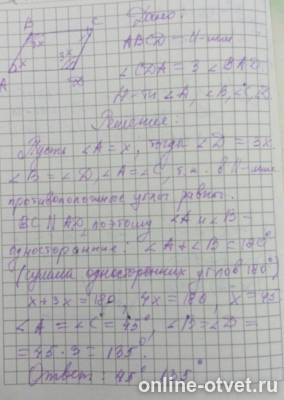 B C Дано:
3x
ABCD – П-мм
3x
∠CDA = 3∠BAD
A x
Н-ти ∠A, ∠B, ∠C, ∠D
Решение:
Пусть ∠A = x, тогда ∠D = 3x
∠B = ∠D, ∠A = ∠C, т.к. в П-мме
противоположные углы равны.
BC || AD, поэтому ∠A и ∠B –
односторонние. ∠A + ∠B = 180°
(сумма односторонних углов 180°)
x + 3x = 180, 4x = 180, x = 45
∠A = ∠C = 45°, ∠B = ∠D =
= 45 · 3 = 135°
Ответ: 45°, 135°
online-otvet.ru